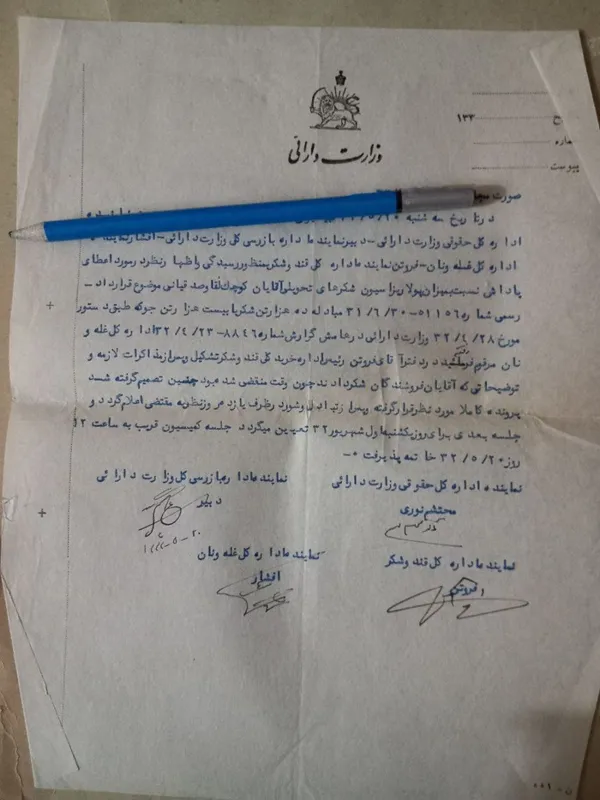 وزارت دارائی
۱۳۳
ماره
پیوست
صورت
در تاریخ سه شنبه
اداره کل حقوقی وزارت دارائی - دبیر نماینده اداره بازرسی کل وزارت دارائی - افشار نماینده
اداره کل غله ونان - فروتن نماینده اداره کل قند وشکر بمنظور رسیدگی و اظهار نظر در مورد اعطای
پاداش نسبت بمیزان پولاریزاسیون شکرهای تحویلی آقایان کوچک آقا وصدقیانی موضوع قرارداد -
رسمی شماره ۵۱۱۵۶-۳۱/۶/۳۰ مبادله ده هزار تن شکر با بیست هزار تن جو که طبق دستور
مورخ ۳۲/۴/۲۸ وزارت دارائی در هامش گزارش شماره ۸۸۴۶-۳۲/۴/۲۳ اداره کل غله و
نان مرقوم در دفتر آقای فروتن رئیس اداره خرید کل قند وشکر تشکیل پس از مذاکرات لازمه و
توضیحاتی که آقایان فروشندگان شکر دادند چون وقت منقضی شده بود چنین تصمیم گرفته شد
پرونده کاملا مورد نظر قرار گرفته پس از تبادل وشور در ظرف یازده روز نظریه مقتضی اعلام گردد و
جلسه بعدی برای روز یکشنبه اول شهریور ۳۲ تعیین میگردد جلسه کمیسیون قریب به ساعت ۱۲
روز ۳۲/۵/۲۰ خاتمه پذیرفت -
نماینده اداره کل حقوقی وزارت دارائی
نماینده اداره بازرسی کل وزارت دارائی
محتشم نوری
دبیر
نماینده اداره کل قند وشکر
نماینده اداره کل غله ونان
فروتن
افشار